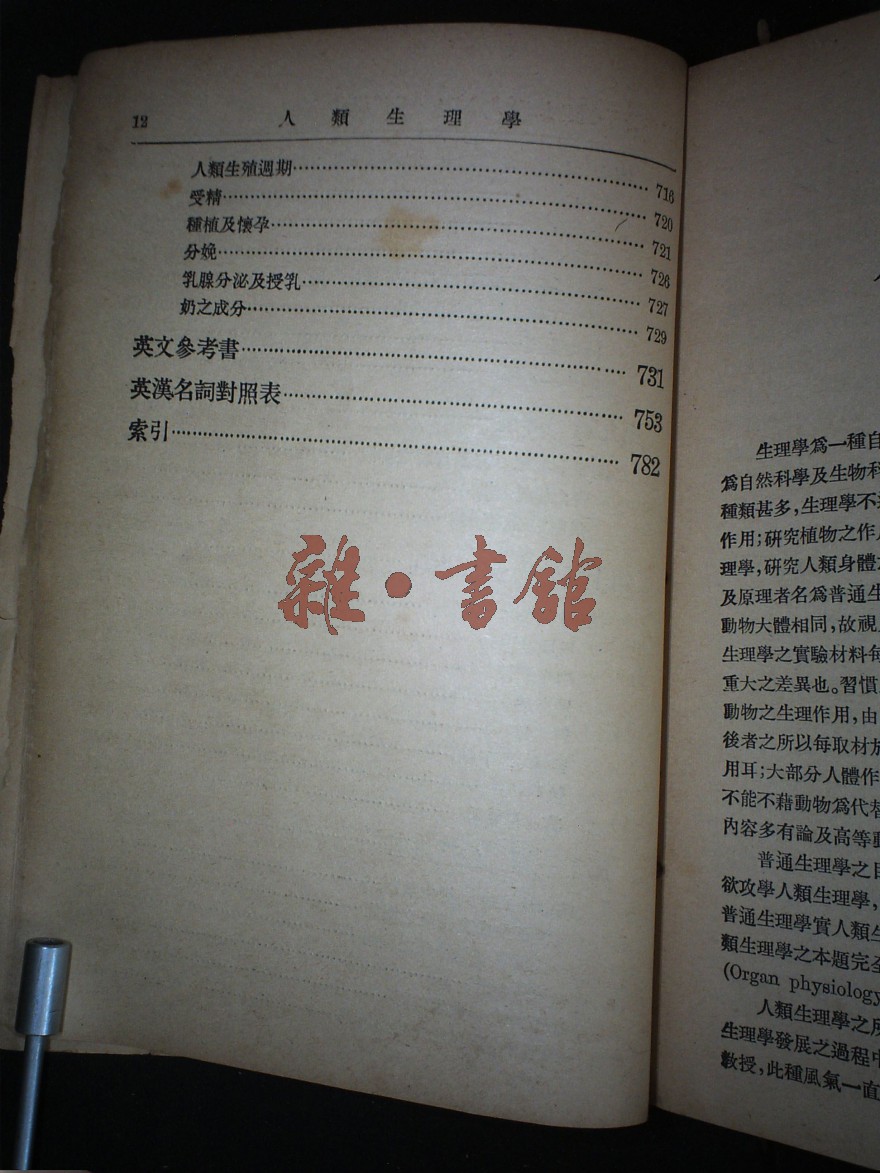 12 人類生理學
人類生殖週期 718
受精 720
種植及懷孕 721
分娩 726
乳腺分泌及授乳 727
奶之成分 729
英文參考書 731
英漢名詞對照表 753
索引 782
雜·書館
生理學爲一種自
爲自然科學及生物科
種類甚多,生理學不
作用;研究植物之作
理學,研究人類身體
及原理者名爲普通生
動物大體相同,故視
生理學之實驗材料每
重大之差異也。習慣
動物之生理作用,由
後者之所以每取材於
用耳;大部分人體作
不能不藉動物爲代替
內容多有論及高等動
普通生理學之目
欲攻學人類生理學,
普通生理學實人類生
類生理學之本題完全
(Organ physiology
人類生理學之所
生理學發展之過程中
教授,此種風氣一直